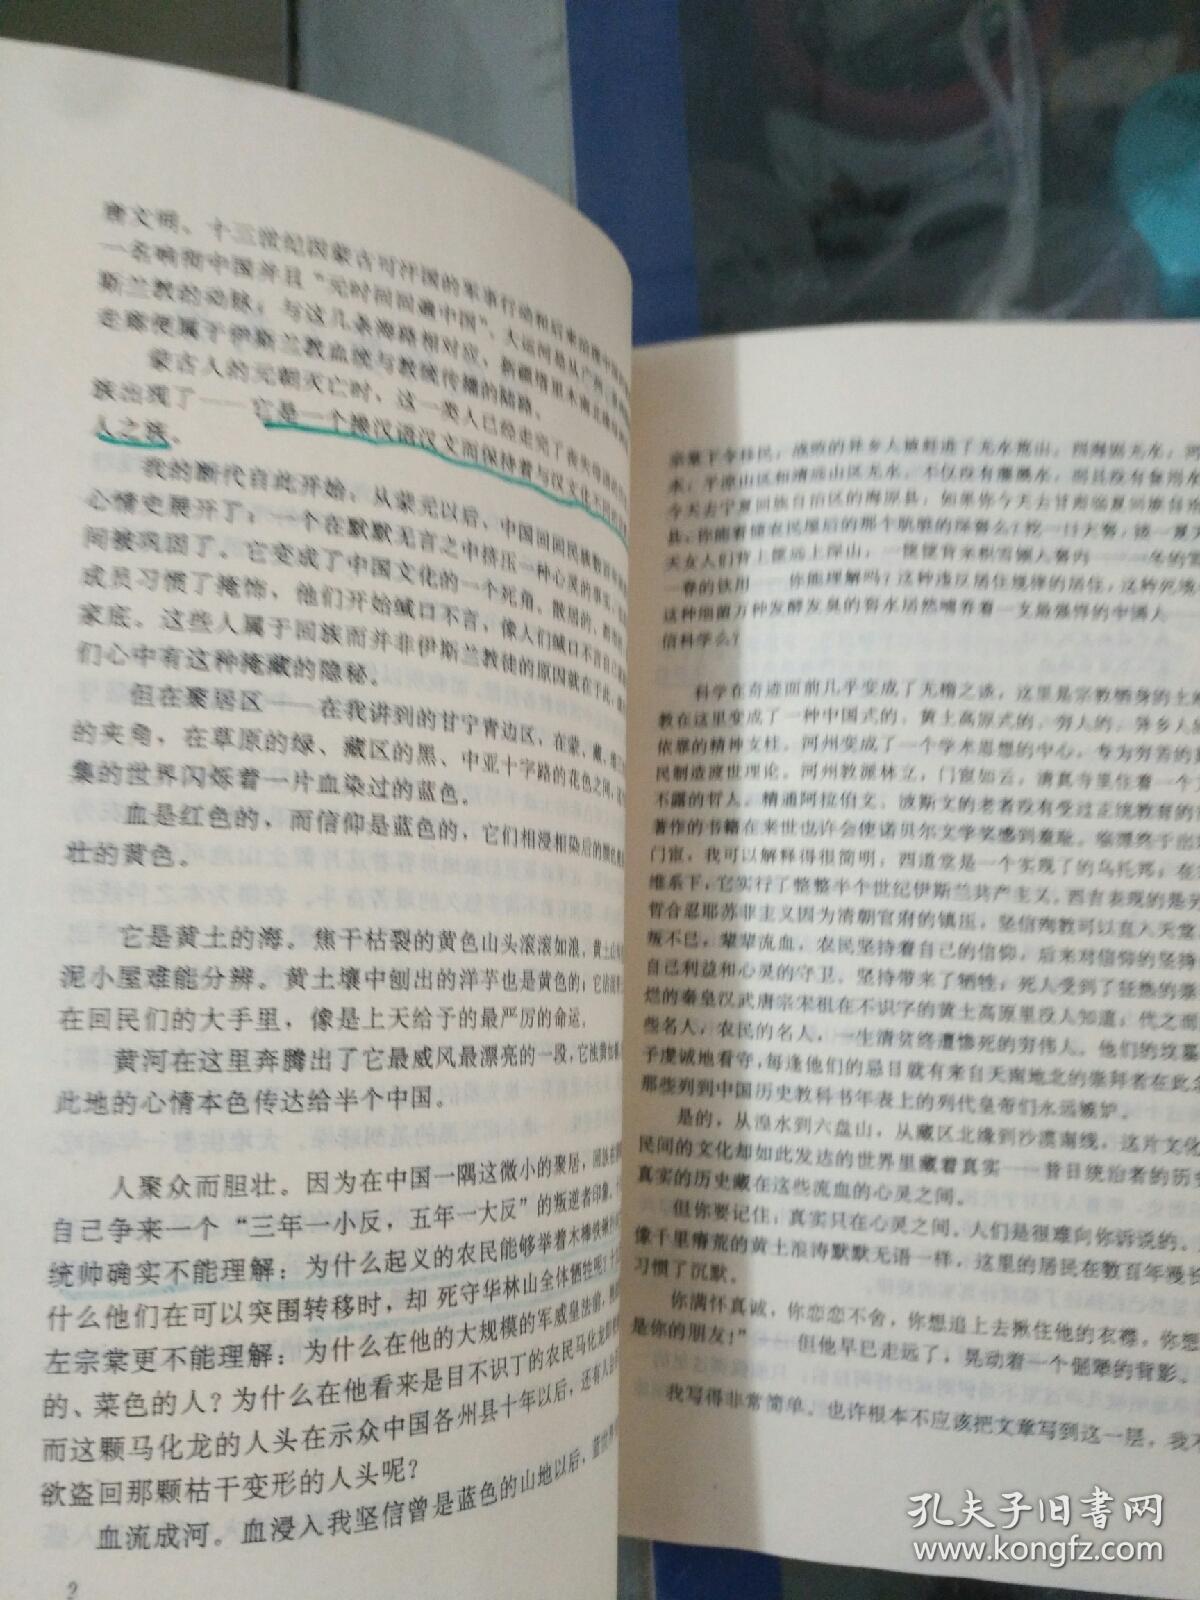 唐文明、十三世纪因蒙古可汗国的军事行动和后来
一名响彻中国并且“元时回回遍中国”、大运河是从广州
斯兰教的动脉；与这几条海路相对应、新疆塔里木南北
走廊便属于伊斯兰教血统与教统传播的陆路。
蒙古人的元朝灭亡时，这一类人已经走完了丧失母语的
族出现了——它是一个操汉语汉文而保持着与汉文化不同的
人之族。
我的断代自此开始，从蒙元以后，中国回回民族数百年的
心情史展开了；一个在默默无言之中挤压一种心灵的事实，
间被巩固了。它变成了中国文化的一个死角。散居的、
成员习惯了掩饰，他们开始缄口不言，像人们缄口不言自己
家底。这些人属于回族而并非伊斯兰教徒的原因就在于此，
们心中有这种掩藏的隐秘。
但在聚居区——在我讲到的甘宁青边区，在蒙、藏、
的夹角，在草原的绿、藏区的黑、中亚十字路的花色之间，
集的世界闪烁着一片血染过的蓝色。
血是红色的，而信仰是蓝色的，它们相浸相染后的颜色
壮的黄色。
它是黄土的海。焦干枯裂的黄色山头滚滚如浪，黄土
泥小屋难能分辨。黄土壤中刨出的洋芋也是黄色的；它
在回民们的大手里，像是上天给予的最严厉的命运，
黄河在这里奔腾出了它最威风最漂亮的一段，它浊黄如
此地的心情本色传达给半个中国。
人聚众而胆壮。因为在中国一隅这微小的聚居，回族在
自己争来一个“三年一小反，五年一大反”的叛逆者印象。
统帅确实不能理解：为什么起义的农民能够举着木棒铁
什么他们在可以突围转移时，却 死守华林山全体牺牲呢？
左宗棠更不能理解：为什么在他的大规模的军威皇法前，
的、菜色的人？为什么在他看来是目不识丁的农民马化龙
而这颗马化龙的人头在示众中国各州县十年以后，还有人
欲盗回那颗枯干变形的人头呢？
血流成河。血浸入我坚信曾是蓝色的山地以后，
2
宗棠下令移民，战败的异乡人被赶进了无水荒山。西海固无水，河
水；平凉山区和清远山区无水。不仅没有灌溉水，而且没有食用水
今天去宁夏回族自治区的海原县，如果你今天去甘肃临夏回族自治
县，你能看懂农民屋后的那个肮脏的深窖么？挖一口大窖，
天女人们背上筐远上深山，一筐筐背来积雪倾入窖内——一冬的雪
一春的饮用——你能理解吗？这种违反居住规律的居住，这种死
这种细菌万种发酵发臭的窖水居然哺养着一支最强悍的中国人——
信科学么？
科学在奇迹面前几乎变成了无稽之谈，这里是宗教栖身的土
教在这里变成了一种中国式的、黄土高原式的、穷人的、异乡人
依靠的精神支柱。河州变成了一个学术思想的中心，专为穷苦的
民制造渡世理论。河州教派林立，门宦如云，清真寺里住着一个
不露的哲人。精通阿拉伯文、波斯文的老者没有受过正统教育的
著作的书籍在来世也许会使诺贝尔文学奖感到羞耻。临潭终于出
门宦，我可以解释得很简明：西道堂是一个实现了的乌托邦；在
维系下，它实行了整整半个世纪伊斯兰共产主义。西吉表现的是
哲合忍耶苏菲主义因为清朝官府的镇压，坚信殉教可以直入天堂
叛不已，辈辈流血，农民坚持着自己的信仰，后来对信仰的坚持
自己利益和心灵的守卫。坚持带来了牺牲；死人受到了狂热的崇
烂的秦皇汉武唐宗宋祖在不识字的黄土高原里没人知道；代之而
些名人，农民的名人，一生清贫终遭惨死的穷伟人。他们的坟墓
子虔诚地看守，每逢他们的忌日就有来自天南地北的崇拜者在此
那些列到中国历史教科书年表上的列代皇帝们永远嫉妒。
是的，从湟水到六盘山，从藏区北缘到沙漠南线，这片文化
民间的文化却如此发达的世界里藏着真实——昔日统治者的历
真实的历史藏在这些流血的心灵之间。
但你要记住，真实只在心灵之间。人们是很难向你诉说的。
像千里瘠荒的黄土浪涛默默无语一样，这里的居民在数百年漫长
习惯了沉默。
你满怀真诚，你恋恋不舍，你想追上去揪住他的衣襟。你想
是你的朋友！” 但他早已走远了，晃动着一个倔犟的背影。
我写得非常简单。也许根本不应该把文章写到这一层，我
孔夫子旧书网
www.kongfz.com